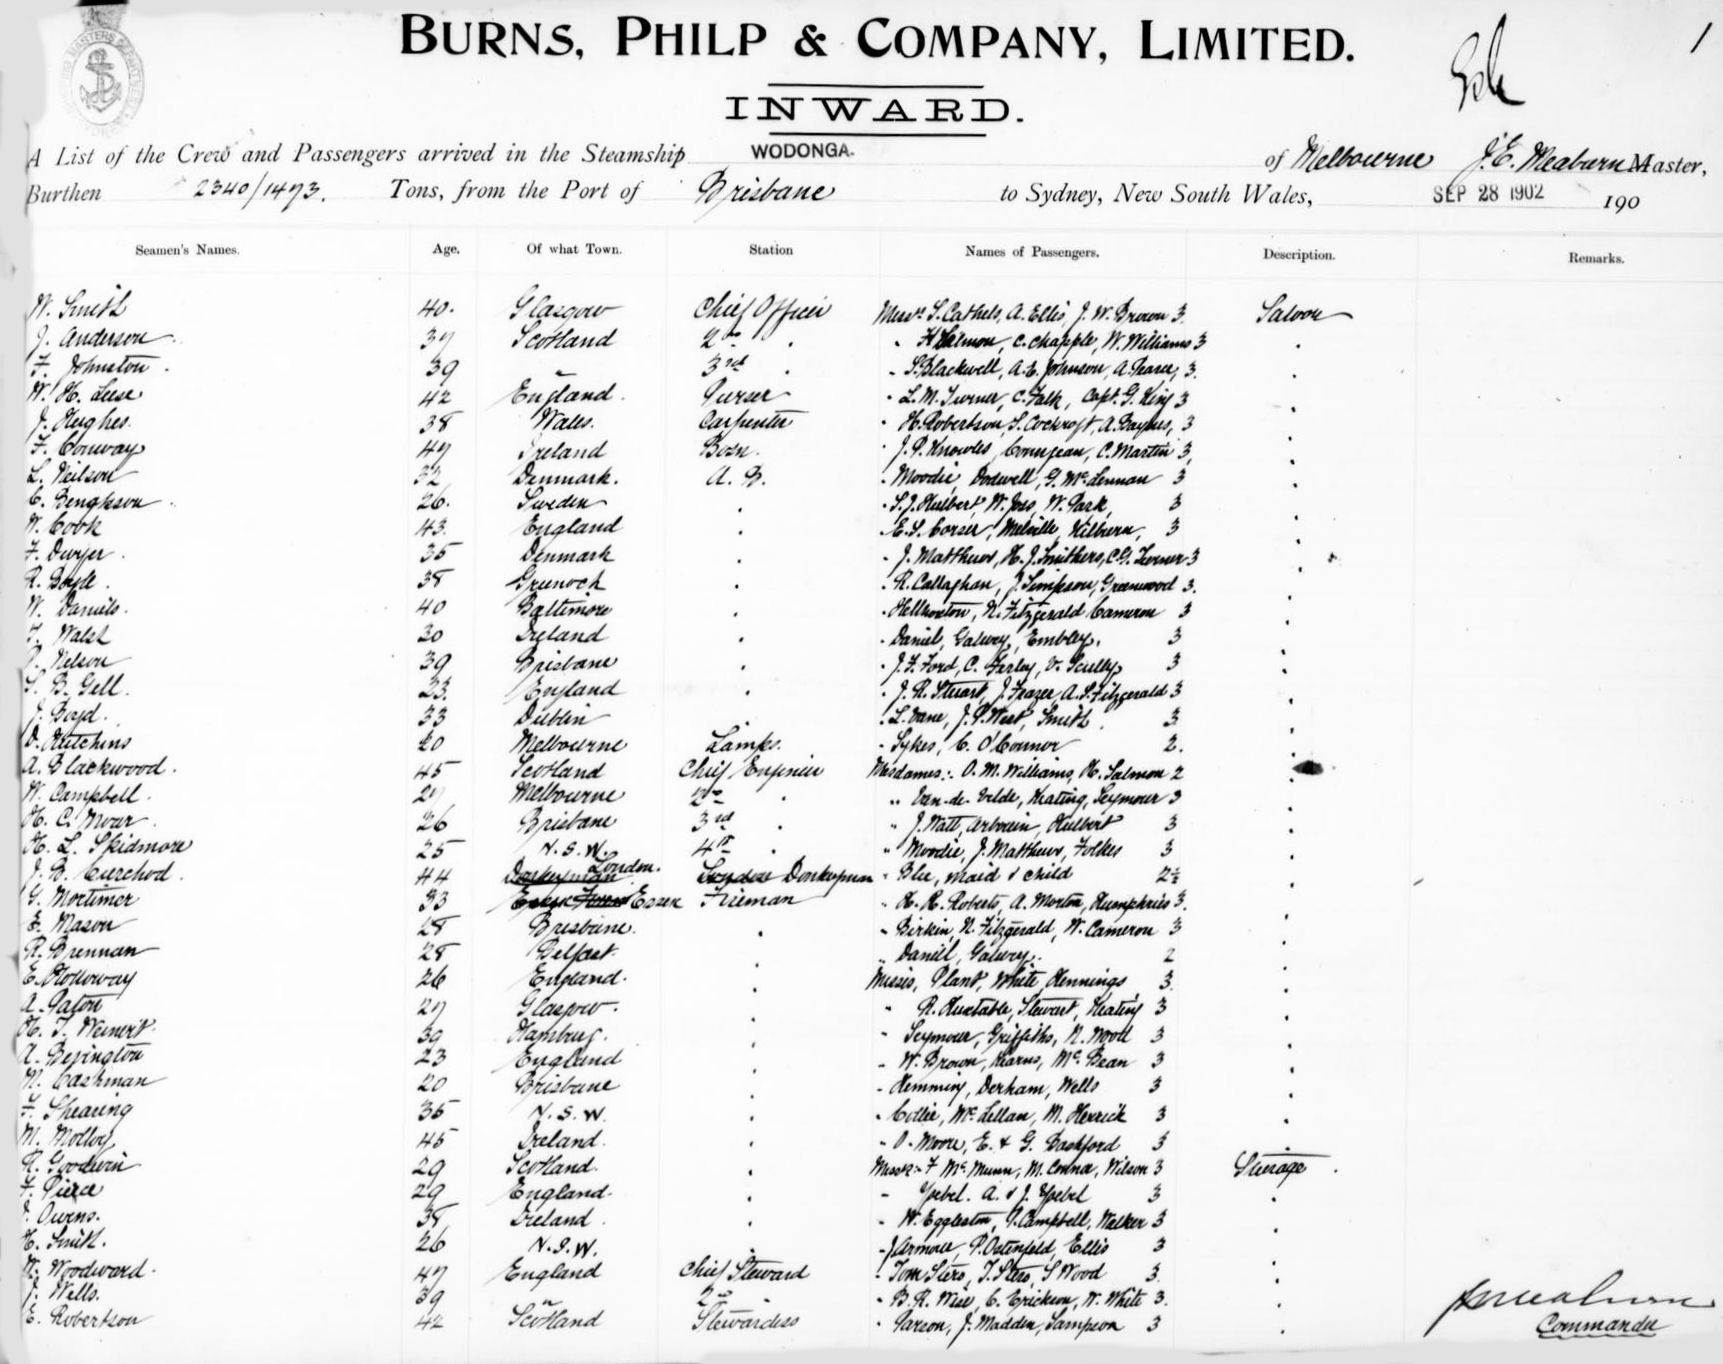 BURNS, PHILP & COMPANY, LIMITED.
1
INWARD.
A List of the Crew and Passengers arrived in the Steamship WODONGA. of Melbourne J. E. Meaburn Master,
Burthen 2340/1473. Tons, from the Port of Brisbane to Sydney, New South Wales, SEP 28 1902 190
Seamen's Names. Age. Of what Town. Station Names of Passengers. Description. Remarks.
W. Smith 40. Glasgow Chief Officer Messrs S. Cathels, A. Ellis, J. W. Brown 3. Saloon
J. Anderson 37 Scotland 2nd " H Salmon, C. Chapple, W. Williams 3
F. Johnston 39 " 3rd " S. Blackwell, A. E. Johnson, A. Pearce, 3.
W. H. Leese 42 England Purser L. M. Turner, C. Falk, Capt. G. King 3
J. Hughes. 38 Wales. Carpenter H. Robertson, S. Cockroft, A. Baynes, 3
F. Conway 47 Ireland Bosn. J. P. Knowles, C. Martin 3,
L. Neilson 32 Denmark. A. B. Moodie, Dodwell, G. McLennan 3
C. Bengkson 26. Sweden S. J. Hulbert, W. Joss, W. Park, 3
W. Cook 43. England E. S. Corser, Melville, Kilburn, 3
F. Dwyer 35 Denmark J. Matthews, H. J. Smithers, C. G. Turner 3
R. Boyle 38 Greenock R. Callaghan, J. Simpson, Greenwood 3.
W. Daniels. 40 Baltimore N. Fitzgerald Cameron 3
T. Walsh 30 Ireland Daniel, Galwey, Embley. 3
P. Nelson 39 Brisbane J. F. Ford, C. Farley, V. Scully 3
S. B. Gell. 23. England J. R. Stuart, J. Frazer, A. S. Fitzgerald 3
J. Boyd. 33 Dublin L. Vane, J. P. West, Smith 3
D. Hutchins 20 Melbourne Lamps. Sykes, C. O'Connor 2.
A. Blackwood. 45 Scotland Chief Engineer Mesdames:- O. M. Williams, H. Salmon 2
W. Campbell. 27 Melbourne 2nd " Van-de-Velde, Keating, Seymour 3
H. C. Moar 26 Brisbane 3rd " J. Watt, Hulbert 3
H. L. Skidmore 25 N. S. W. 4th " Moodie, J. Matthews, Folkes 3
J. B. Cuerchod. 44 Donkeyman London. London Donkeyman Blee, maid & child 2½
G. Mortimer 33 Essex Fireman H. R. Roberts, A. Morton, Humphries 3.
E. Mason 28 Brisbane. Birkin, N. Fitzgerald, W. Cameron 3
R. Brennan 28 Belfast. Daniell, Galwey. 2
E. Holloway 26 England. Misses, Plant, White, Hennings 3
A. Paton 27 Glasgow. R. Huxtable, Stewart, Keating 3
H. T. Weinert. 39 Hamburg. Seymour, Griffiths, N. Wood 3
A. Bevington 23 England W. Brown, Kearns, McBean 3
M. Cashman 20 Brisbane Hemming, Derham, Wells 3
F. Shearing 35 N. S. W. Collie, McLellan, M. Herrick 3
M. Molloy 45 Ireland. O. Moore, E. & G. Bashford 3
R. Goodwin 29 Scotland. Messrs:- F McMunn, M. Connor, Wilson 3 Steerage
F. Pierce 29 England. Ypebel. A. & J. Ypebel 3
Owens. 38 Ireland. W. Eggleston, Campbell, Walker 3
H. Smith. 26 N. S. W. J Armour, P. Ostenfeld, Ellis 3
W. Woodward. 47 England Chief Steward Tom Sters, T. Sters, S Wood 3.
J. Wells. 39 " 2nd " B. R. Wise, C. Erickson, W. White 3.
E. Robertson 42 Scotland Stewardess Parson, J. Madden, Sampson 3
Commander